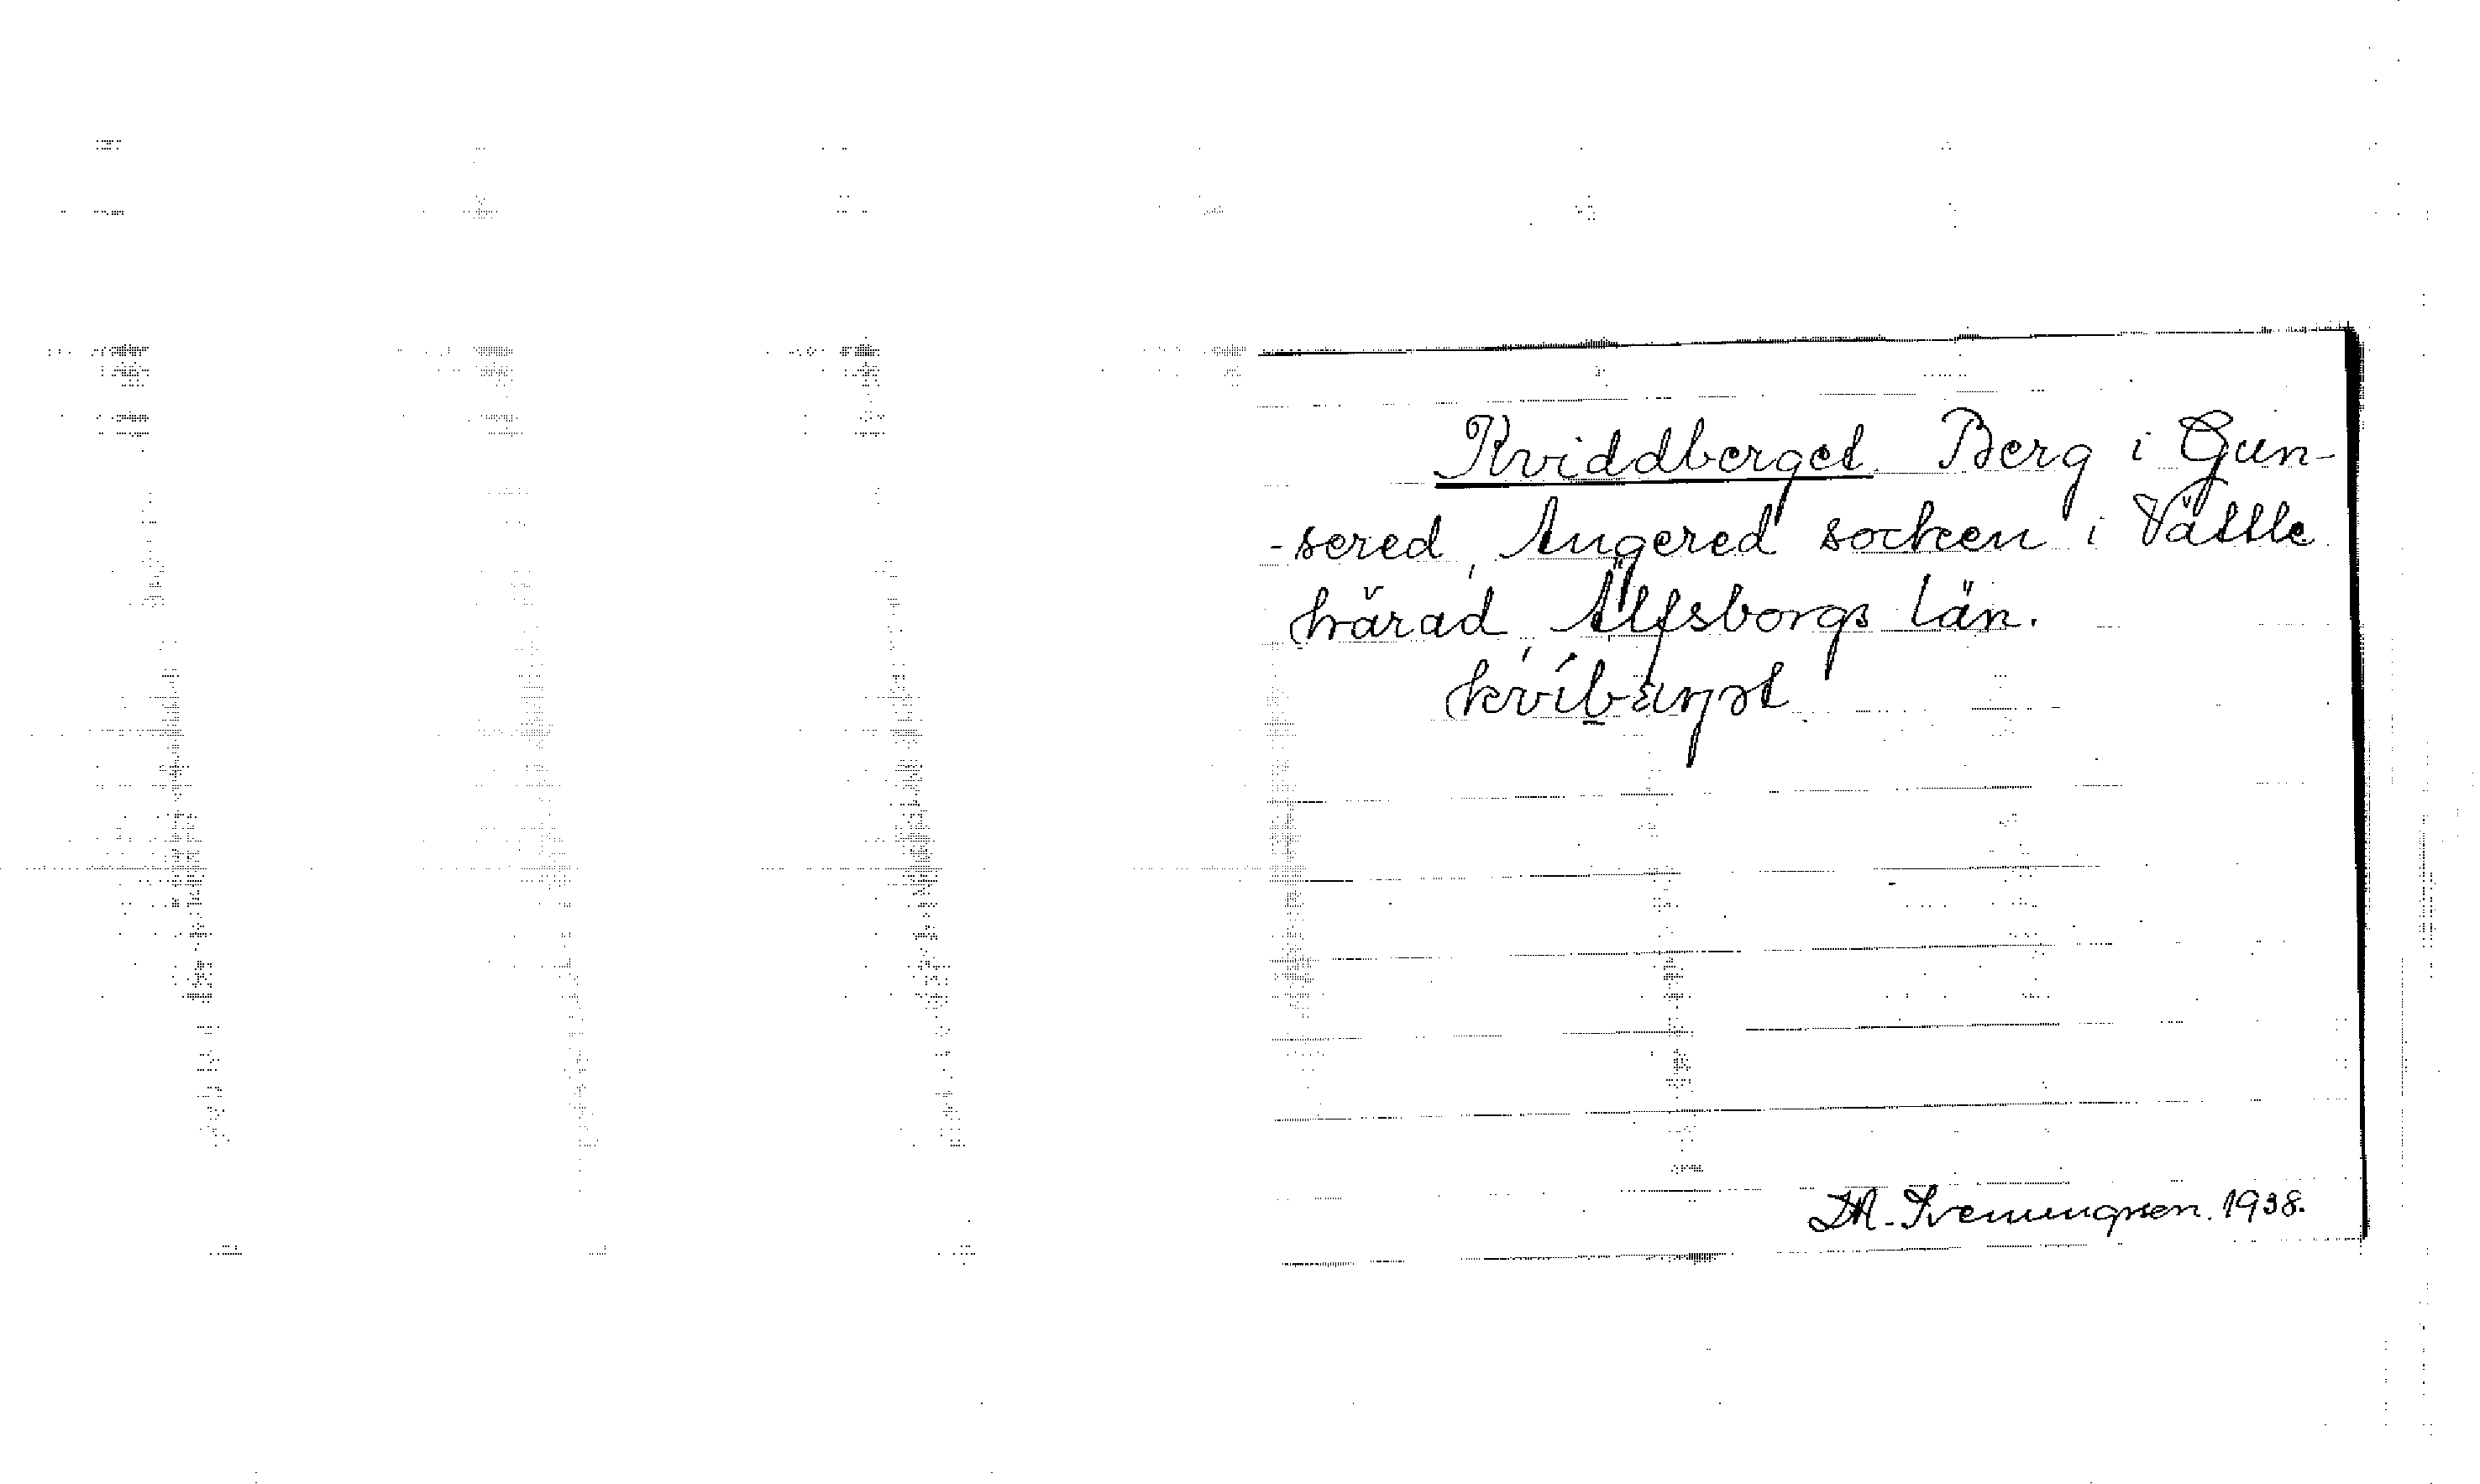 Kviddberget. Berg i Gun-
-sered, Angered socken i Vättle
härad, Älfsborgs län.
D.A. Svenungsson. 1938.